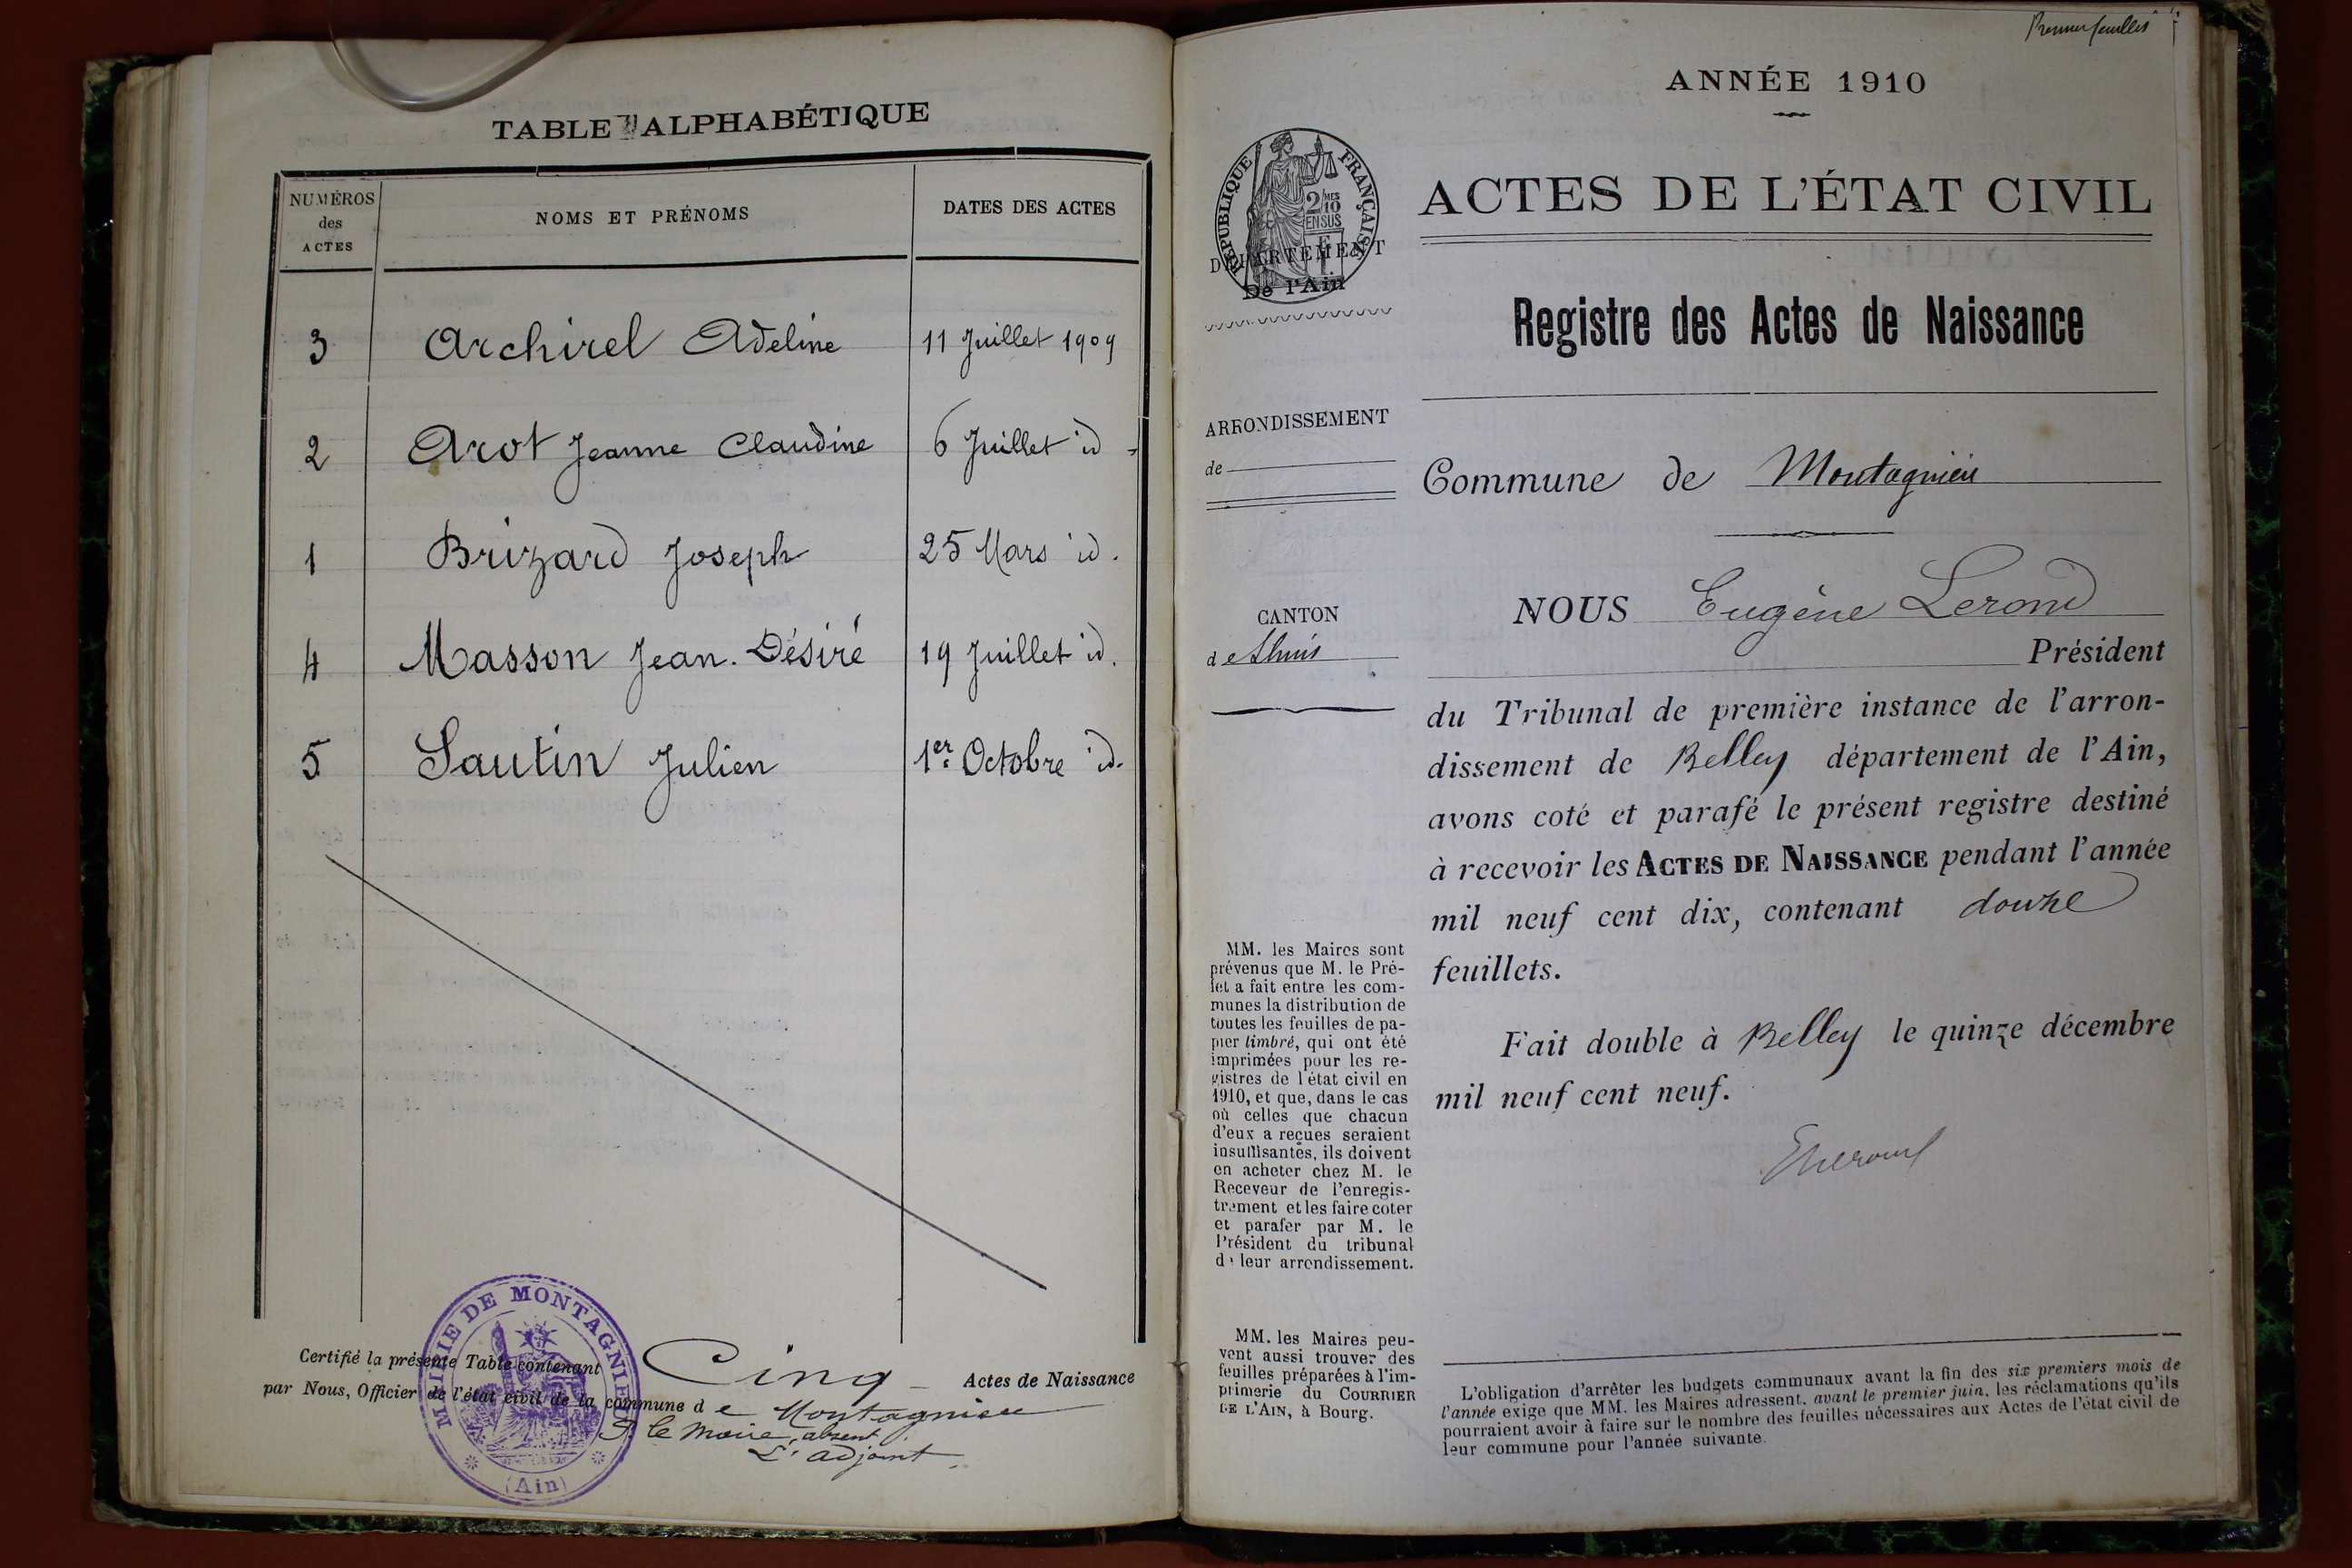 TABLE ALPHABÉTIQUE
NUMÉROS des ACTES NOMS ET PRÉNOMS DATES DES ACTES
3 Archirel Adeline 11 Juillet 1909
2 Arot Jeanne Claudine 6 Juillet id -
1 Brizard Joseph 25 Mars id.
4 Masson Jean. Désiré 19 Juillet id.
5 Sautin Julien 1er Octobre id.
Certifié la présente Table contenant Cinq Actes de Naissance
par Nous, Officier de l'état civil de la commune de Montagnieu
P. le Maire, absent
L'adjoint
MAIRIE DE MONTAGNIEU
(Ain)
Premier feuillet
ANNÉE 1910
RÉPUBLIQUE FRANÇAISE
2/10 MES
EN SUS
DÉPARTEMENT
De l'Ain
ACTES DE L'ÉTAT CIVIL
Registre des Actes de Naissance
ARRONDISSEMENT
de
Commune de Montagnieu
CANTON
de Lhuis
NOUS Eugène Lerond
Président
du Tribunal de première instance de l'arron-
dissement de Belley département de l'Ain,
avons coté et parafé le présent registre destiné
à recevoir les ACTES DE NAISSANCE pendant l'année
mil neuf cent dix, contenant douze
feuillets.
Fait double à Belley le quinze décembre
mil neuf cent neuf.
MM. les Maires sont
prévenus que M. le Pré-
fet a fait entre les com-
munes la distribution de
toutes les feuilles de pa-
pier timbré, qui ont été
imprimées pour les re-
gistres de l'état civil en
1910, et que, dans le cas
où celles que chacun
d'eux a reçues seraient
insuffisantes, ils doivent
en acheter chez M. le
Receveur de l'enregis-
trement et les faire coter
et parafer par M. le
Président du tribunal
de leur arrondissement.
MM. les Maires peu-
vent aussi trouver des
feuilles préparées à l'im-
primerie du COURRIER
DE L'AIN, à Bourg.
L'obligation d'arrêter les budgets communaux avant la fin des six premiers mois de
l'année exige que MM. les Maires adressent, avant le premier juin, les réclamations qu'ils
pourraient avoir à faire sur le nombre des feuilles nécessaires aux Actes de l'état civil de
leur commune pour l'année suivante.